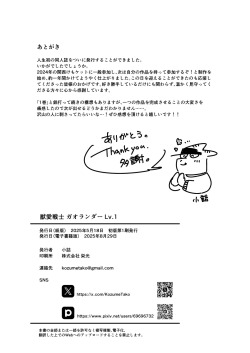 あとがき
人生初の同人誌をついに発行することができました。
いかがでしたでしょうか。
2024年の関西けもケットに一般参加し、次は自分の作品を持って参加するぞ!と制作を
始め、約一年間かけてようやく仕上がりました。この日を迎えることができたのも応援し
てくださった皆様のおかげです。好き勝手しているだけにも関わらず、温かく見守ってく
ださる方々に心から感謝しています。
「1巻」と銘打って続きの構想もありますが、一つの作品を完成させることの大変さを
痛感したので次が出せるかどうかまだわかりません……。
沢山の人に刺さってたらいいな…!ぜひ感想を頂けると嬉しいです!!
ありがとう。
Thank you.
多謝。
小話
獣愛戦士 ガオランダー Lv.1
発行日(紙版) 2025年5月18日 初版第1刷発行
発行日(電子書籍版) 2025年8月29日
発行者 小話
印刷所 株式会社 栄光
連絡先 kozumetako@gmail.com
SNS
https://x.com/KozumeTako
https://www.pixiv.net/users/69696732
本書の全部または一部を許可なく複写複製、電子化、
翻訳した上でのWebへのアップロードすることを禁止します。